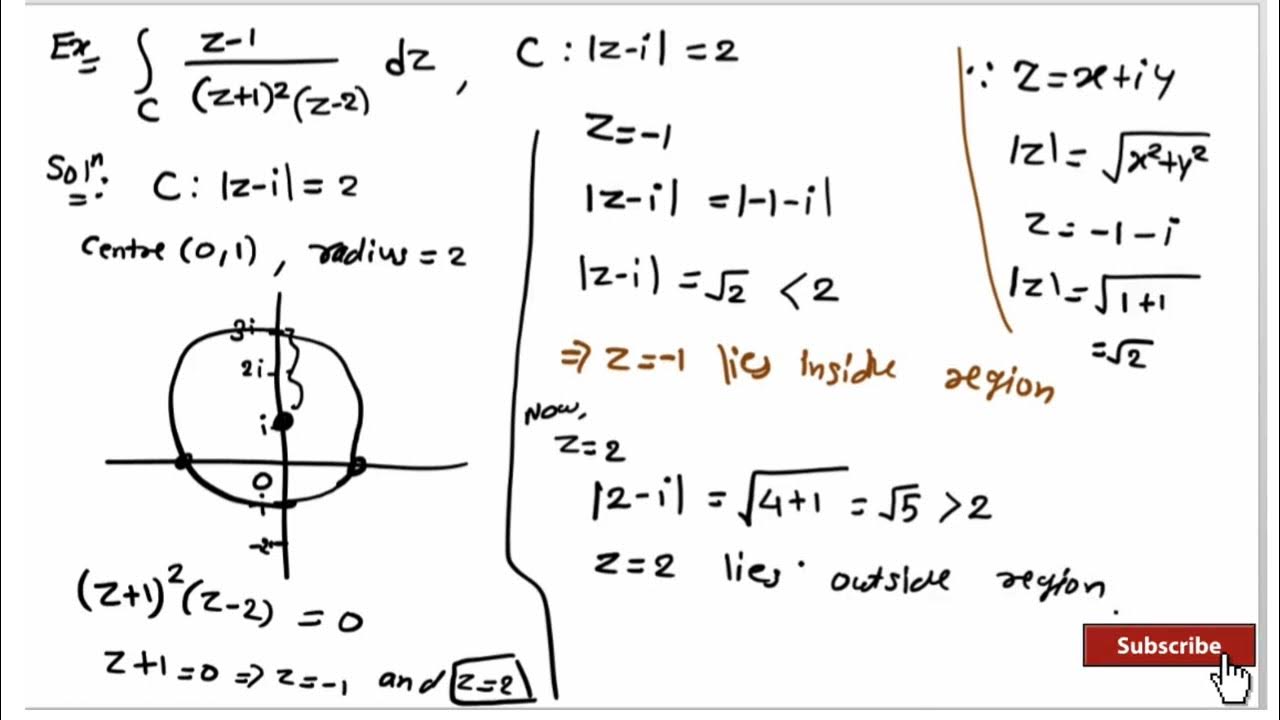 Ex ∫_C (z-1)/((z+1)²(z-2)) dz , C : |z-i| = 2
Solⁿ: C : |z-i| = 2
Centre (0,1) , radius = 2
3i
2i
i
0
-i
-2i
(z+1)²(z-2) = 0
z+1=0 ⇒ z=-1 and z=2
z=-1
|z-i| = |-1-i|
|z-i| = √2 < 2
⇒ z=-1 lies inside region
Now,
z=2
|2-i| = √(4+1) = √5 > 2
z=2 lies outside region.
∵ z=x+iy
|z| = √(x²+y²)
z = -1-i
|z| = √(1+1)
= √2
Subscribe